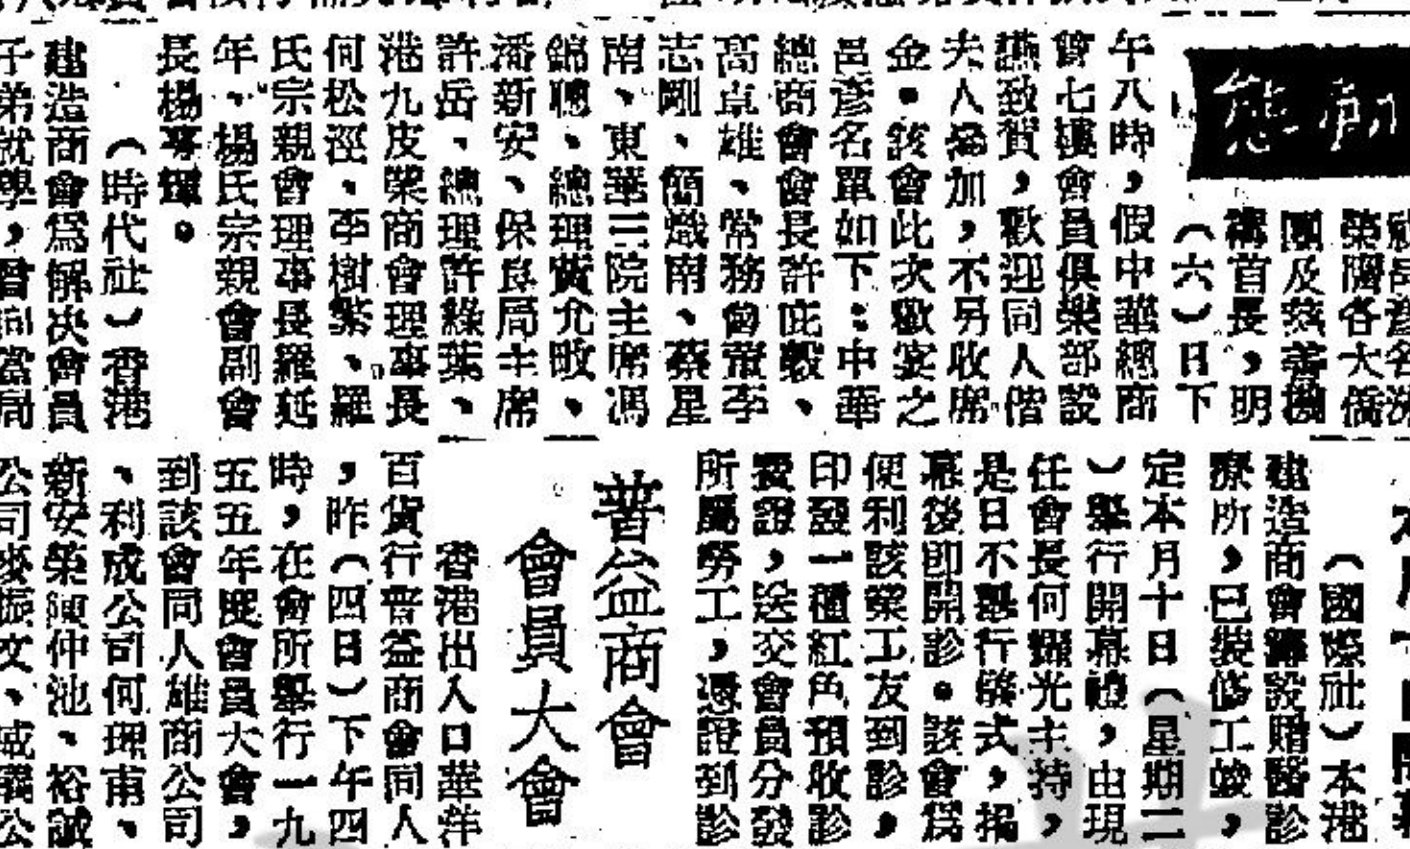 動態
榮膺各大僑
團及慈善機
構首長，明
（六）日下
午八時，假中華總商
會七樓會員俱樂部設
讌致賀，歡迎同人偕
夫人參加，不另收席
金。該會此次歡宴之
邑彥名單如下：中華
總商會會長許庇穀、
高卓雄、常務會董李
志剛、簡熾南、蔡星
南、東華三院主席馮
錦聰、總理黃允畋、
潘新安、保良局主席
許岳、總理許綠葉、
港九皮業商會理事長
何松溪、李樹繁、羅
氏宗親會理事長羅延
年、楊氏宗親會副會
長楊專輝。
（時代社）香港
建造商會為解決會員
子弟就學，曾向當局
（國際社）本港
建造商會籌設贈醫診
療所，已裝修工竣，
定本月十日（星期二
）舉行開幕禮，由現
任會長何耀光主持，
是日不舉行儀式，揭
幕後即開診。該會為
便利該業工友到診，
印發一種紅色預收診
費證，送交會員分發
所屬勞工，憑證到診
普益商會
會員大會
香港出入口華洋
百貨行普益商會同人
，昨（四日）下午四
時，在會所舉行一九
五五年度會員大會，
到該會同人雄商公司
、利成公司何理甫、
新安榮陳仲池、裕誠
公司麥振文、威義公